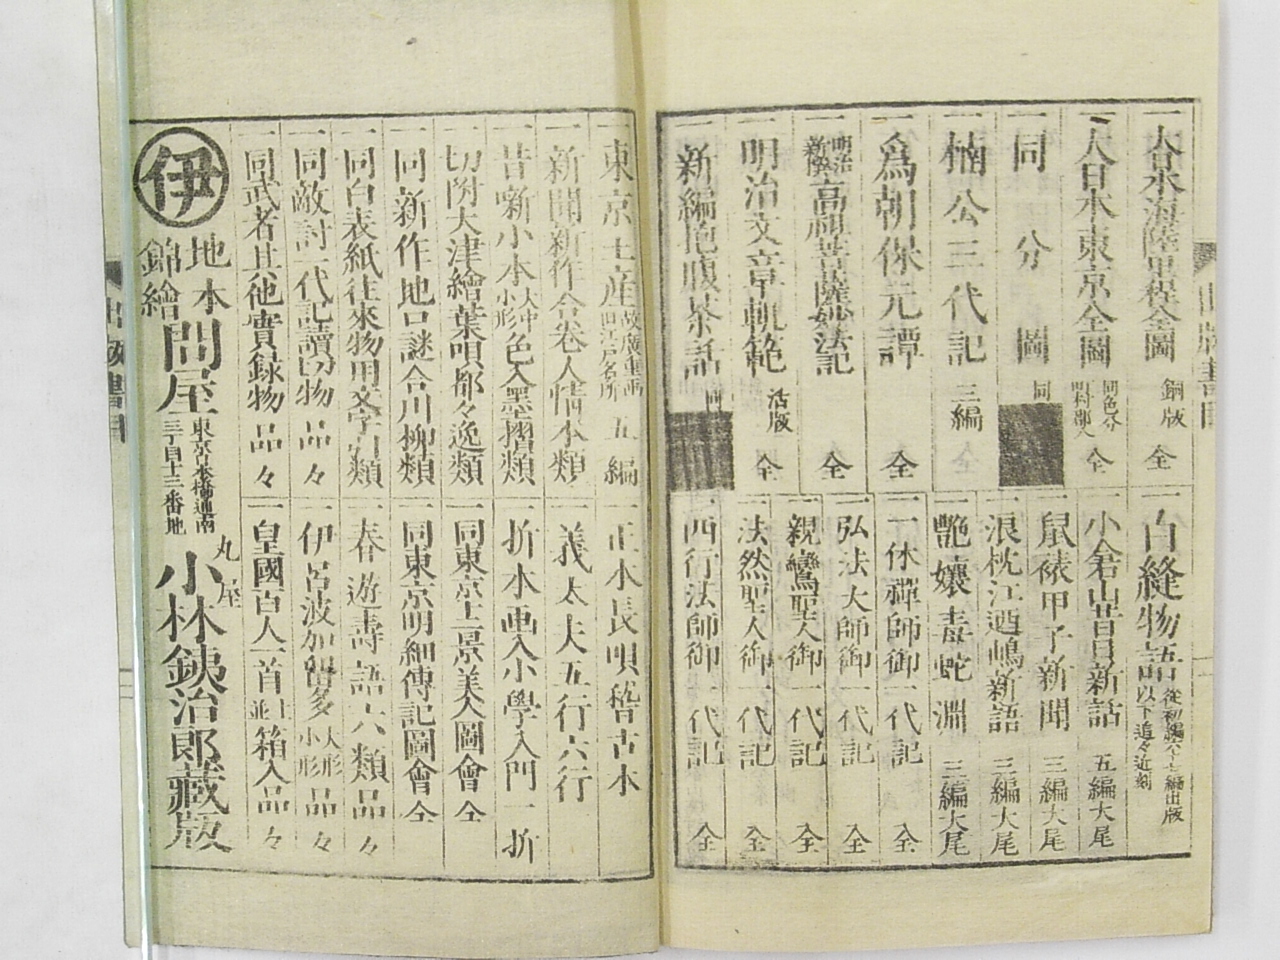 一大日本海陸里程全圖 銅版 全
一大日本東京全圖 同色分 全
一同分圖 同
一楠公三代記 三編 全
一爲朝保元譚 全
明治新撰高祖菩薩妙法記 全
一明治文章軌範 活版 全
一新編抱腹茶話 同
一白縫物語 以下追々近刻
一小倉山昔日新話 五編大尾
一鼠裱甲子新聞 三編大尾
一浪枕江迺嶋新語 三編大尾
一艶孃毒蛇淵 三編大尾
一一休禪師御一代記 全
一弘法大師御一代記 全
一親鸞聖人御一代記 全
一法然聖人御一代記 全
一西行法師御一代記 全
出版書目
一東京土産 故廣重画 旧江戸名所 五編
一新聞新作合巻人情本類
一昔噺小本 大中小形 色入墨摺類
一切附大津繪葉唄都々逸類
一同新作地口謎合川柳類
一同白表紙往來物用文字引類
一同敵討一代記讀切物 品々
一同武者其他實録物 品々
一正本長唄稽古本
一義太夫五行六行
一折本画入小學入門一折
一同東京土景美人圖會 全
一同東京明細傳記圖會 全
一春遊壽語六類 品々
一伊呂波加留多 大形小形 品々
一皇國百人一首 並箱入品々
伊
地本錦繪問屋
東京京橋通南三丁目十三番地
丸屋
小林銕治郎藏版
出版書目